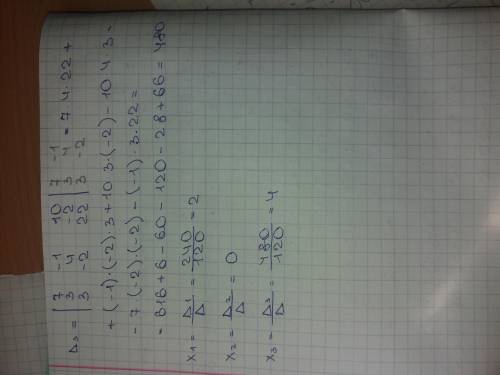 Δ₃ = | 7 -1 10 | 7 -1
3 4 -2 | 3 4 = 7·4·22 +
3 -2 22 | 3 -2
+ (-1)·(-2)·3 + 10·3·(-2) - 10·4·3 -
- 7·(-2)·(-2) - (-1)·3·22 =
= 616 + 6 - 60 - 120 - 28 + 66 = 480
x₁ = Δ₁/Δ = 240/120 = 2
x₂ = Δ₂/Δ = 0
x₃ = Δ₃/Δ = 480/120 = 4